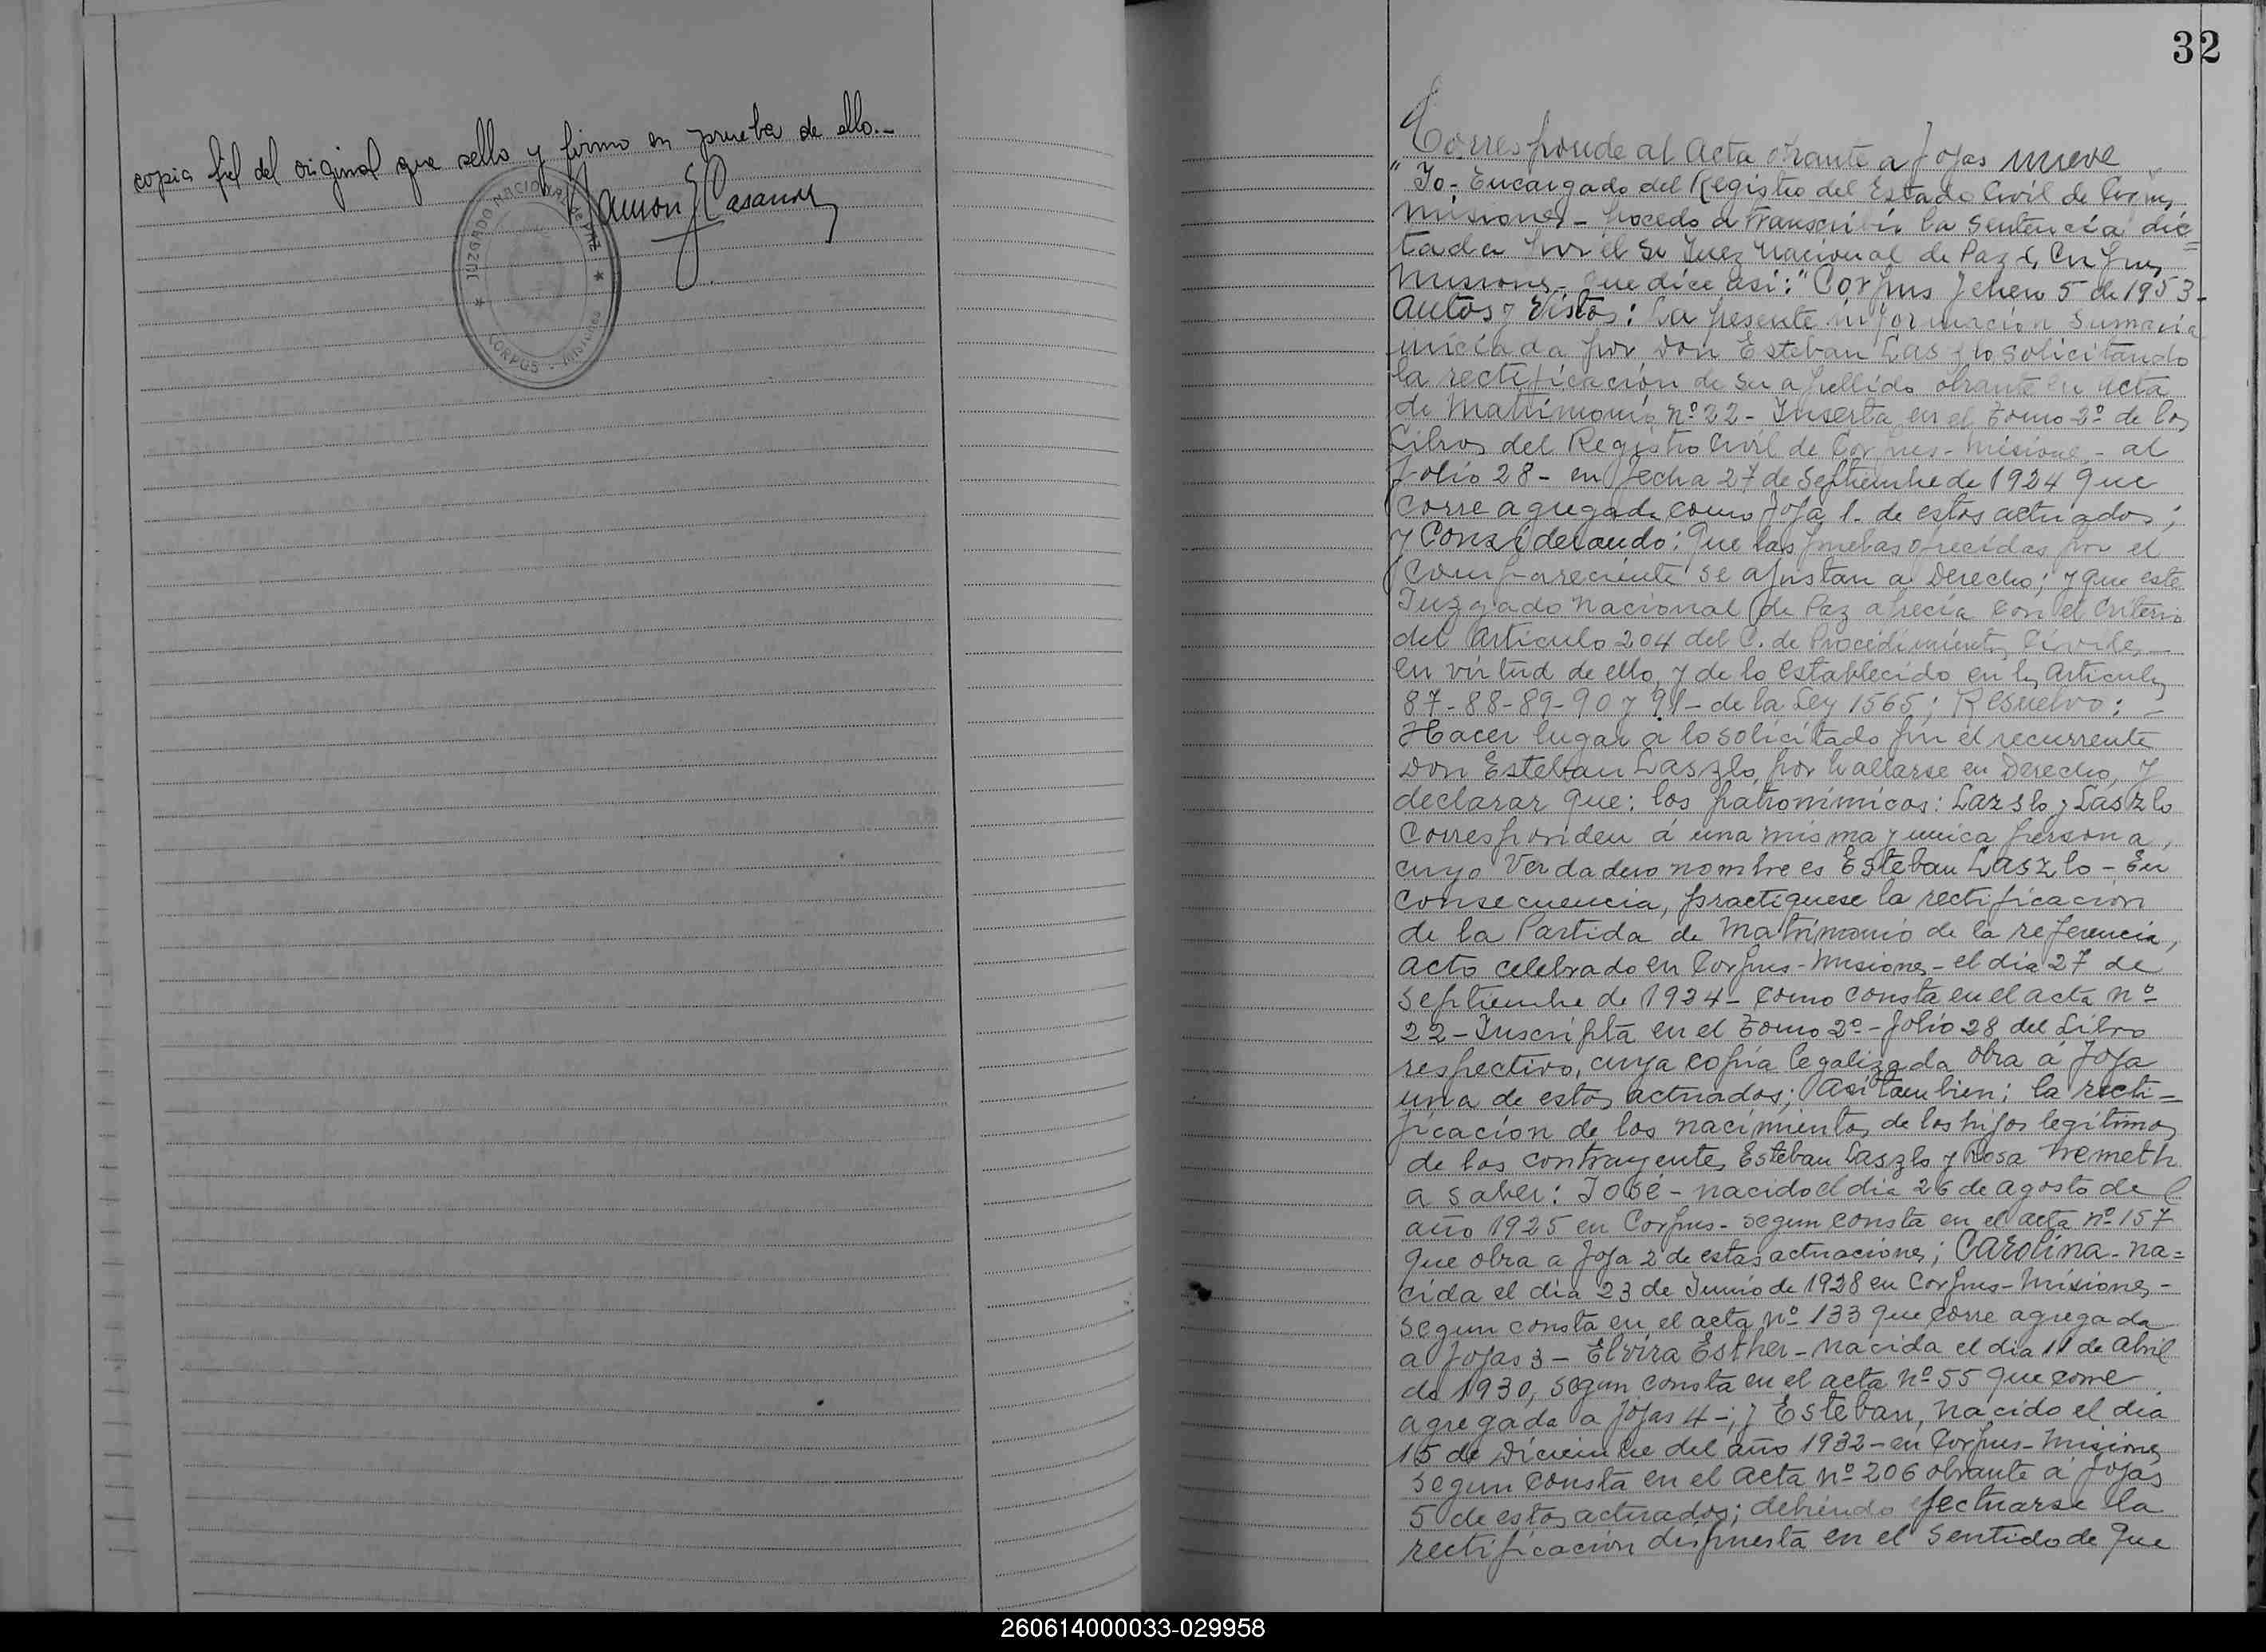 copia fiel del original que sello y firmo en prueba de ello.-
JUZGADO NACIONAL de PAZ
CORPUS - Misiones
32
Corresponde al Acta obrante a fojas nueve
"Yo - Encargado del Registro del Estado Civil de Corpus,
Misiones - procedo a transcribir la Sentencia dic=
tada por el Sr Juez Nacional de Paz de Corpus,
Misiones - que dice asi: "Corpus, Enero 5 de 1953-
Autos y Vistos: La presente información Sumaria
iniciada por Don Esteban Laszlo solicitando
la rectificación de su apellido obrante en acta
de Matrimonio nº 22 - Inserta en el Tomo 2º de los
Libros del Registro Civil de Corpus - Misiones - al
folio 28 - en fecha 27 de Septiembre de 1924 que
corre agregada como foja 1. de estos actuados;
y Considerando: Que las pruebas ofrecidas por el
compareciente se ajustan a Derecho; y que este
Juzgado Nacional de Paz aprecia con el Criterio
del Artículo 204 del C. de Procedimientos Civiles -
en virtud de ello, y de lo establecido en los Artículos
87-88-89-90 y 91 - de la Ley 1565; Resuelvo: =
Hacer lugar a lo solicitado por el recurrente
Don Esteban Laszlo, por hallarse en Derecho, y
declarar que: los patronímicos: Lazslo y Laszlo
corresponden á una misma y unica persona,
cuyo verdadero nombre es Esteban Laszlo - En
consecuencia, practiquese la rectificación
de la Partida de Matrimonio de la referencia,
acto celebrado en Corpus - Misiones - el día 27 de
Septiembre de 1924 - como consta en el acta nº
22 - Inscripta en el Tomo 2º - folio 28 del Libro
respectivo, cuya copia legalizada obra á foja
una de estos actuados; asi tambien; la recti=
ficación de los nacimientos de los hijos legítimos
de los contrayentes Esteban Laszlo y Rosa Nemeth
a saber: José - nacido el día 26 de agosto del
año 1925 en Corpus - segun consta en el acta nº 157
que obra a foja 2 de estas actuaciones; Carolina - na=
cida el día 23 de Junio de 1928 en Corpus - Misiones -
segun consta en el acta nº 133 que corre agregada
a fojas 3 - Elvira Esther - nacida el día 11 de abril
de 1930, segun consta en el acta nº 55 que corre
agregada a fojas 4 -; y Esteban, nacido el día
15 de Diciembre del año 1932 - en Corpus - Misiones
segun consta en el acta nº 206 obrante á fojas
5 de estos actuados; debiendo efectuarse la
rectificación dispuesta en el sentido de que
260614000033-029958